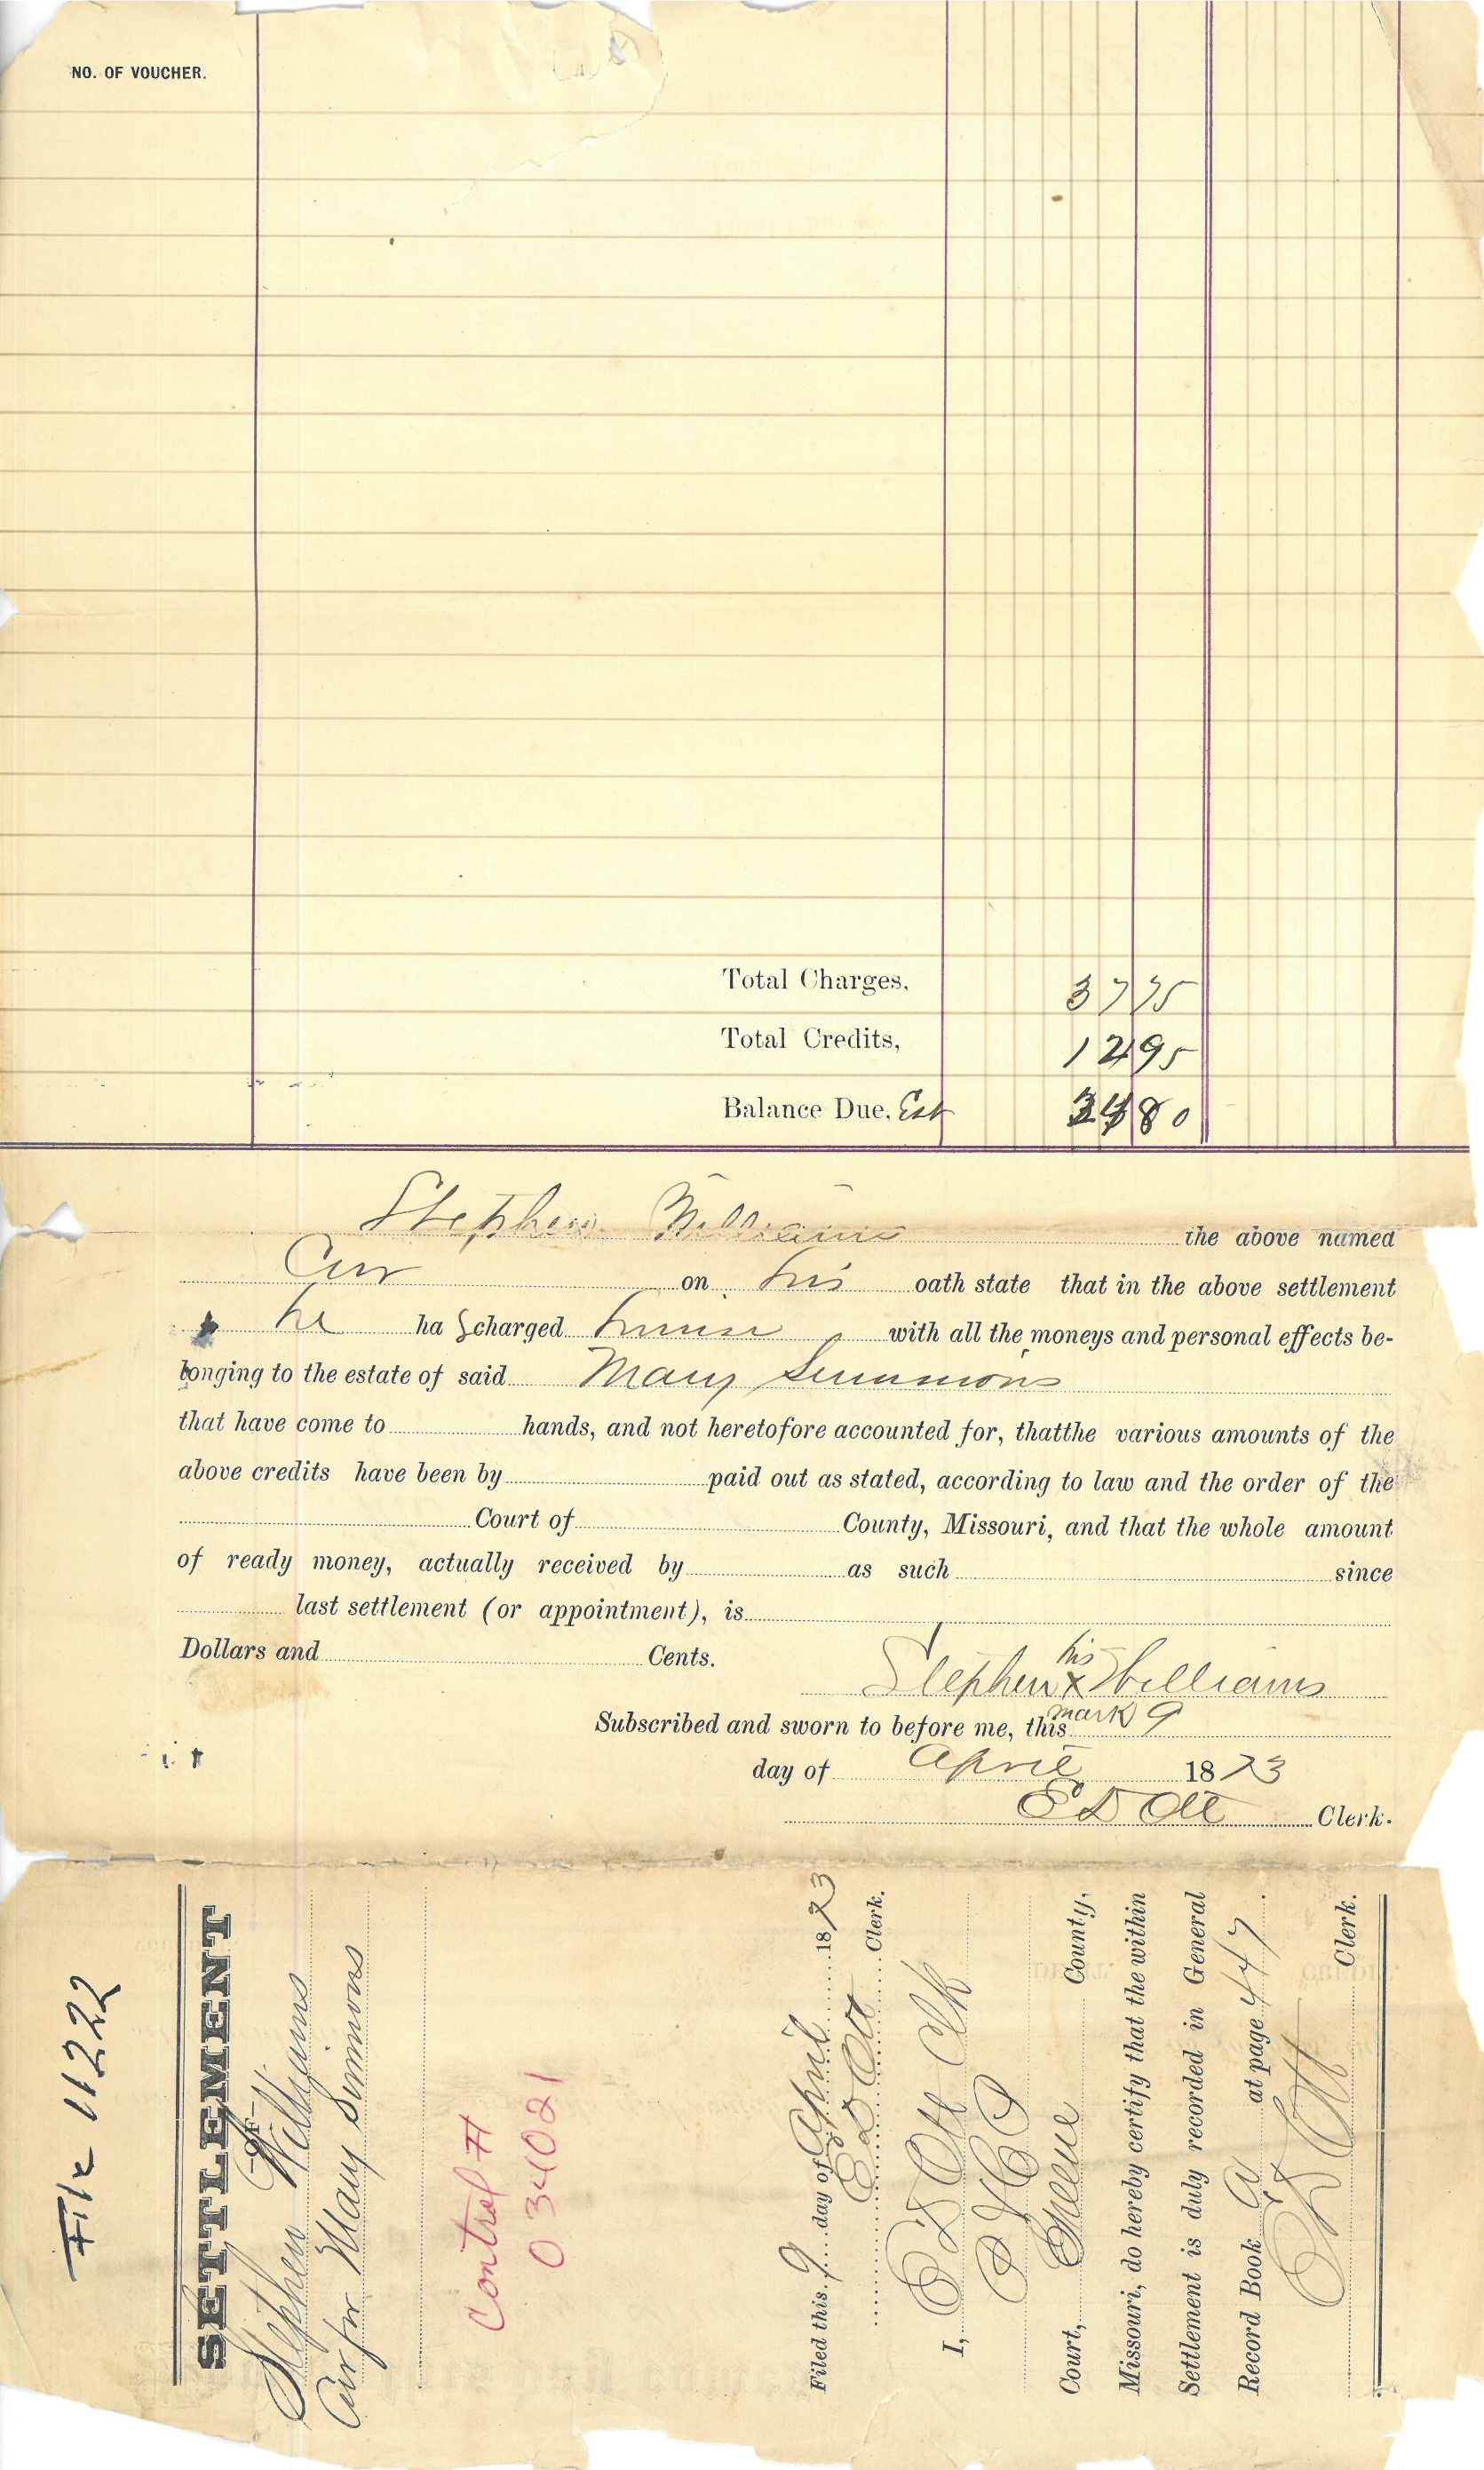 NO. OF VOUCHER.
Total Charges, 37 75
Total Credits, 12 95
Balance Due, Est 24 80
Stephen Williams the above named
Cur on his oath state that in the above settlement
he ha s charged himself with all the moneys and personal effects be-
longing to the estate of said Mary Simmons
that have come to hands, and not heretofore accounted for, thatthe various amounts of the
above credits have been by paid out as stated, according to law and the order of the
Court of County, Missouri, and that the whole amount
of ready money, actually received by as such since
last settlement (or appointment), is
Dollars and Cents.
his
Stephen x Williams
mark
Subscribed and sworn to before me, this 9
day of April 1873
E D Ott Clerk.
File 11222
SETTLEMENT
—OF—
Stephen Williams
Cur for Mary Simmons
Control #
034021
Filed this 9 day of April 1873
E D Ott Clerk.
I, E D Ott Clk
Court, Greene County,
Missouri, do hereby certify that the within
Settlement is duly recorded in General
Record Book A at page 447.
E D Ott Clerk.